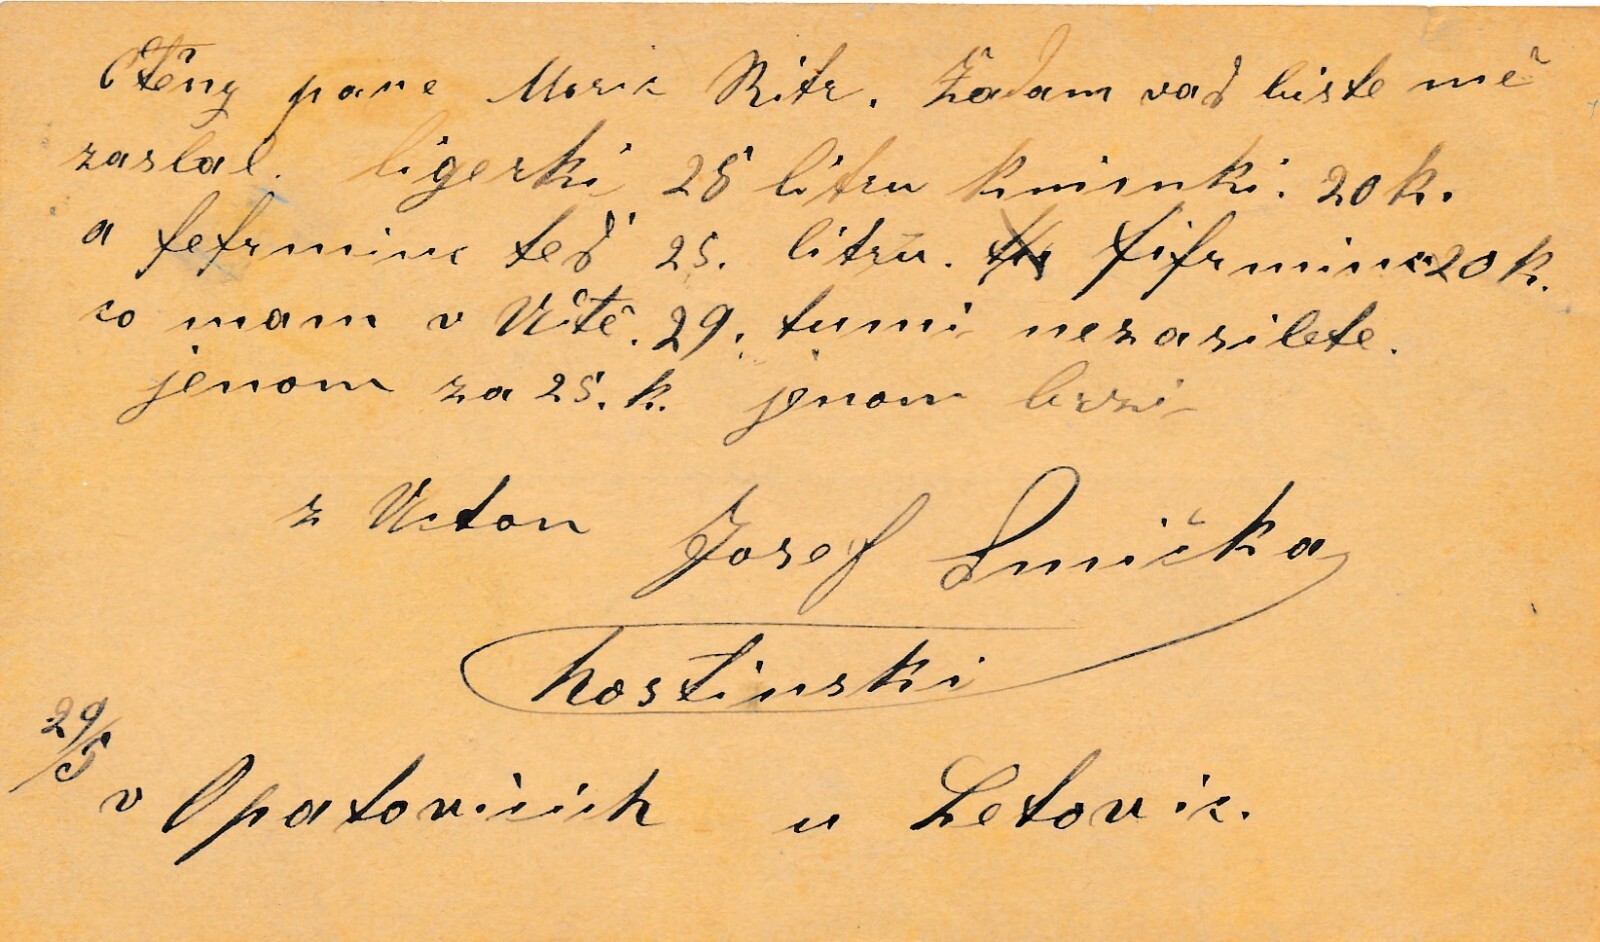 Ctěny pane Moric Ritr. Žadam vaś biste mě
zaslal. ligerki 25 litru kminki. 20 k.
a fefrminc teď 25. litru. fifrminc 20 k.
co mam v Učtě. 29. tumi nezasilete.
jenom za 25. k. jenom brzi
z Uctou Josef Smička
hostinski
29/5
v Opatovicich u Letovic.